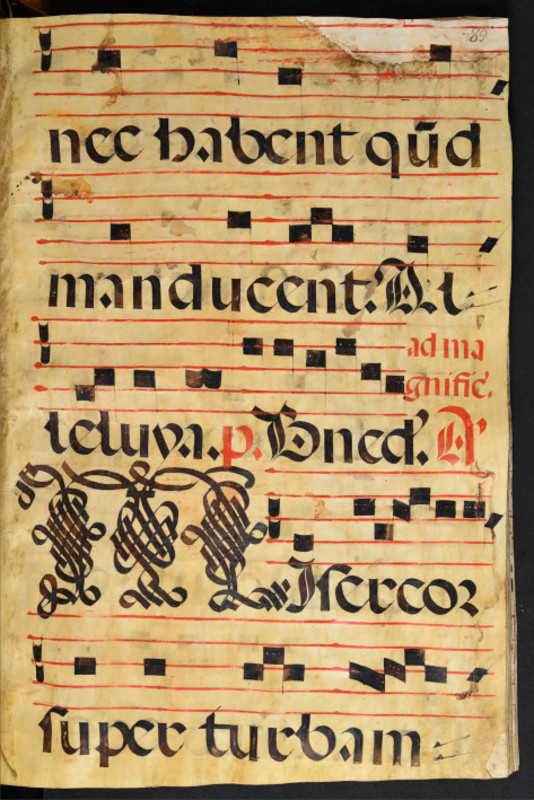 89
nec habent qũd
manducent. Al-
ad ma
gnific̃.
leluya. p. Bned̃. A'
Misercor
super turbam-